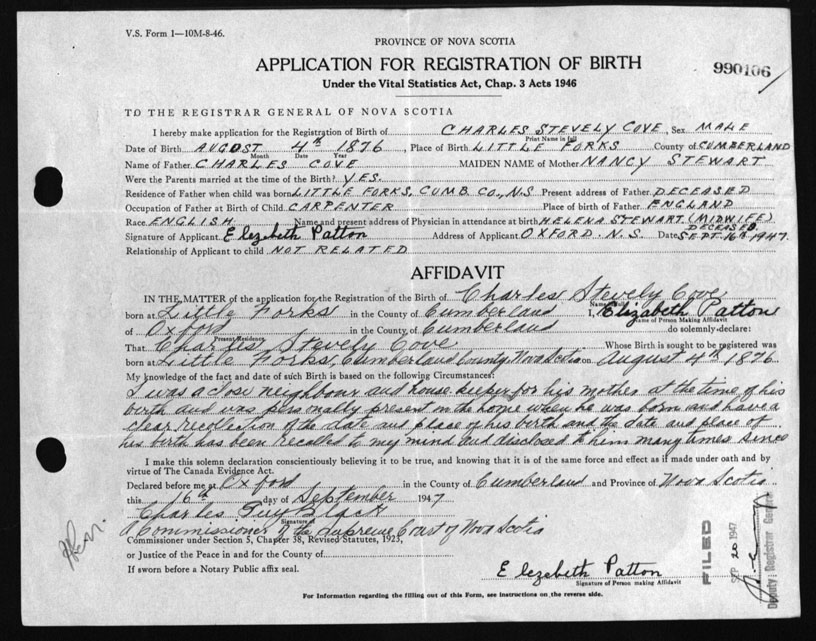 V.S. Form 1—10M-8-46.
PROVINCE OF NOVA SCOTIA
APPLICATION FOR REGISTRATION OF BIRTH
Under the Vital Statistics Act, Chap. 3 Acts 1946
990106
TO THE REGISTRAR GENERAL OF NOVA SCOTIA
I hereby make application for the Registration of Birth of CHARLES STEVELY COVE, Sex MALE
Print Name in full
Date of Birth AUGUST 4th 1876, Place of Birth LITTLE FORKS County of CUMBERLAND
Month Date Year
Name of Father CHARLES COVE MAIDEN NAME of Mother NANCY STEWART
Were the Parents married at the time of the Birth? YES.
Residence of Father when child was born LITTLE FORKS, CUMB. CO., N.S Present address of Father DECEASED
Occupation of Father at Birth of Child CARPENTER Place of birth of Father ENGLAND
Race ENGLISH Name and present address of Physician in attendance at birth HELENA STEWART (MIDWIFE)
DECEASED.
Signature of Applicant Elezebeth Patton Address of Applicant OXFORD. N.S. Date SEPT. 16th 1947.
Relationship of Applicant to child NOT RELATED
AFFIDAVIT
IN THE MATTER of the application for the Registration of the Birth of Charles Stevely Cove
Name in full
born at Little Forks in the County of Cumberland I, Elizabeth Patton
Name of Person Making Affidavit
of Oxford in the County of Cumberland do solemnly declare:
Present Residence
That Charles Stevely Cove Whose Birth is sought to be registered was
born at Little Forks, Cumberland County, Nova Scotia on August 4th 1876
My knowledge of the fact and date of such Birth is based on the following Circumstances:
I was a close neighbour and house keeper for his mother at the time of his
birth and was personally present in the home when he was born and have a
clear recollection of the date and place of his birth and the date and place of
his birth has been recalled to my mind and disclosed to him many times since
I make this solemn declaration conscientiously believing it to be true, and knowing that it is of the same force and effect as if made under oath and by
virtue of The Canada Evidence Act.
Declared before me at Oxford in the County of Cumberland and Province of Nova Scotia
this 16th day of September 1947
Charles Guy Black
Signature of
A Commissioner of the Supreme Court of Nova Scotia
Commissioner under Section 5, Chapter 38, Revised Statutes, 1923,
or Justice of the Peace in and for the County of
If sworn before a Notary Public affix seal.
Elezebeth Patton
Signature of Person making Affidavit
FILED
SEP 20 1947
Deputy Registrar General
For Information regarding the filling out of this Form, see instructions on the reverse side.